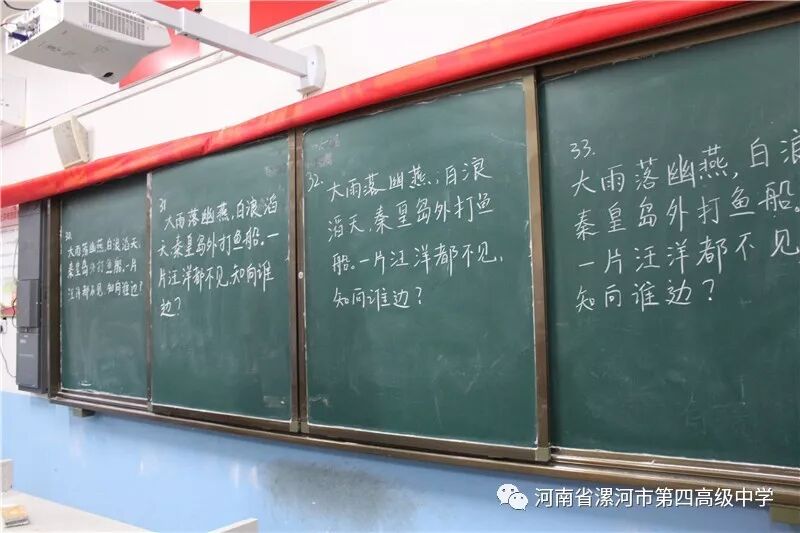 30.
大雨落幽燕,白浪滔天,
秦皇岛外打鱼船。一片
汪洋都不见,知向谁边?
31
大雨落幽燕,白浪滔
天,秦皇岛外打鱼船。一
片汪洋都不见,知向谁
边?
32.
大雨落幽燕,白浪
滔天,秦皇岛外打鱼
船。一片汪洋都不见,
知向谁边?
33.
大雨落幽燕,白浪
秦皇岛外打鱼船。
一片汪洋都不见
知向谁边?
河南省漯河市第四高级中学